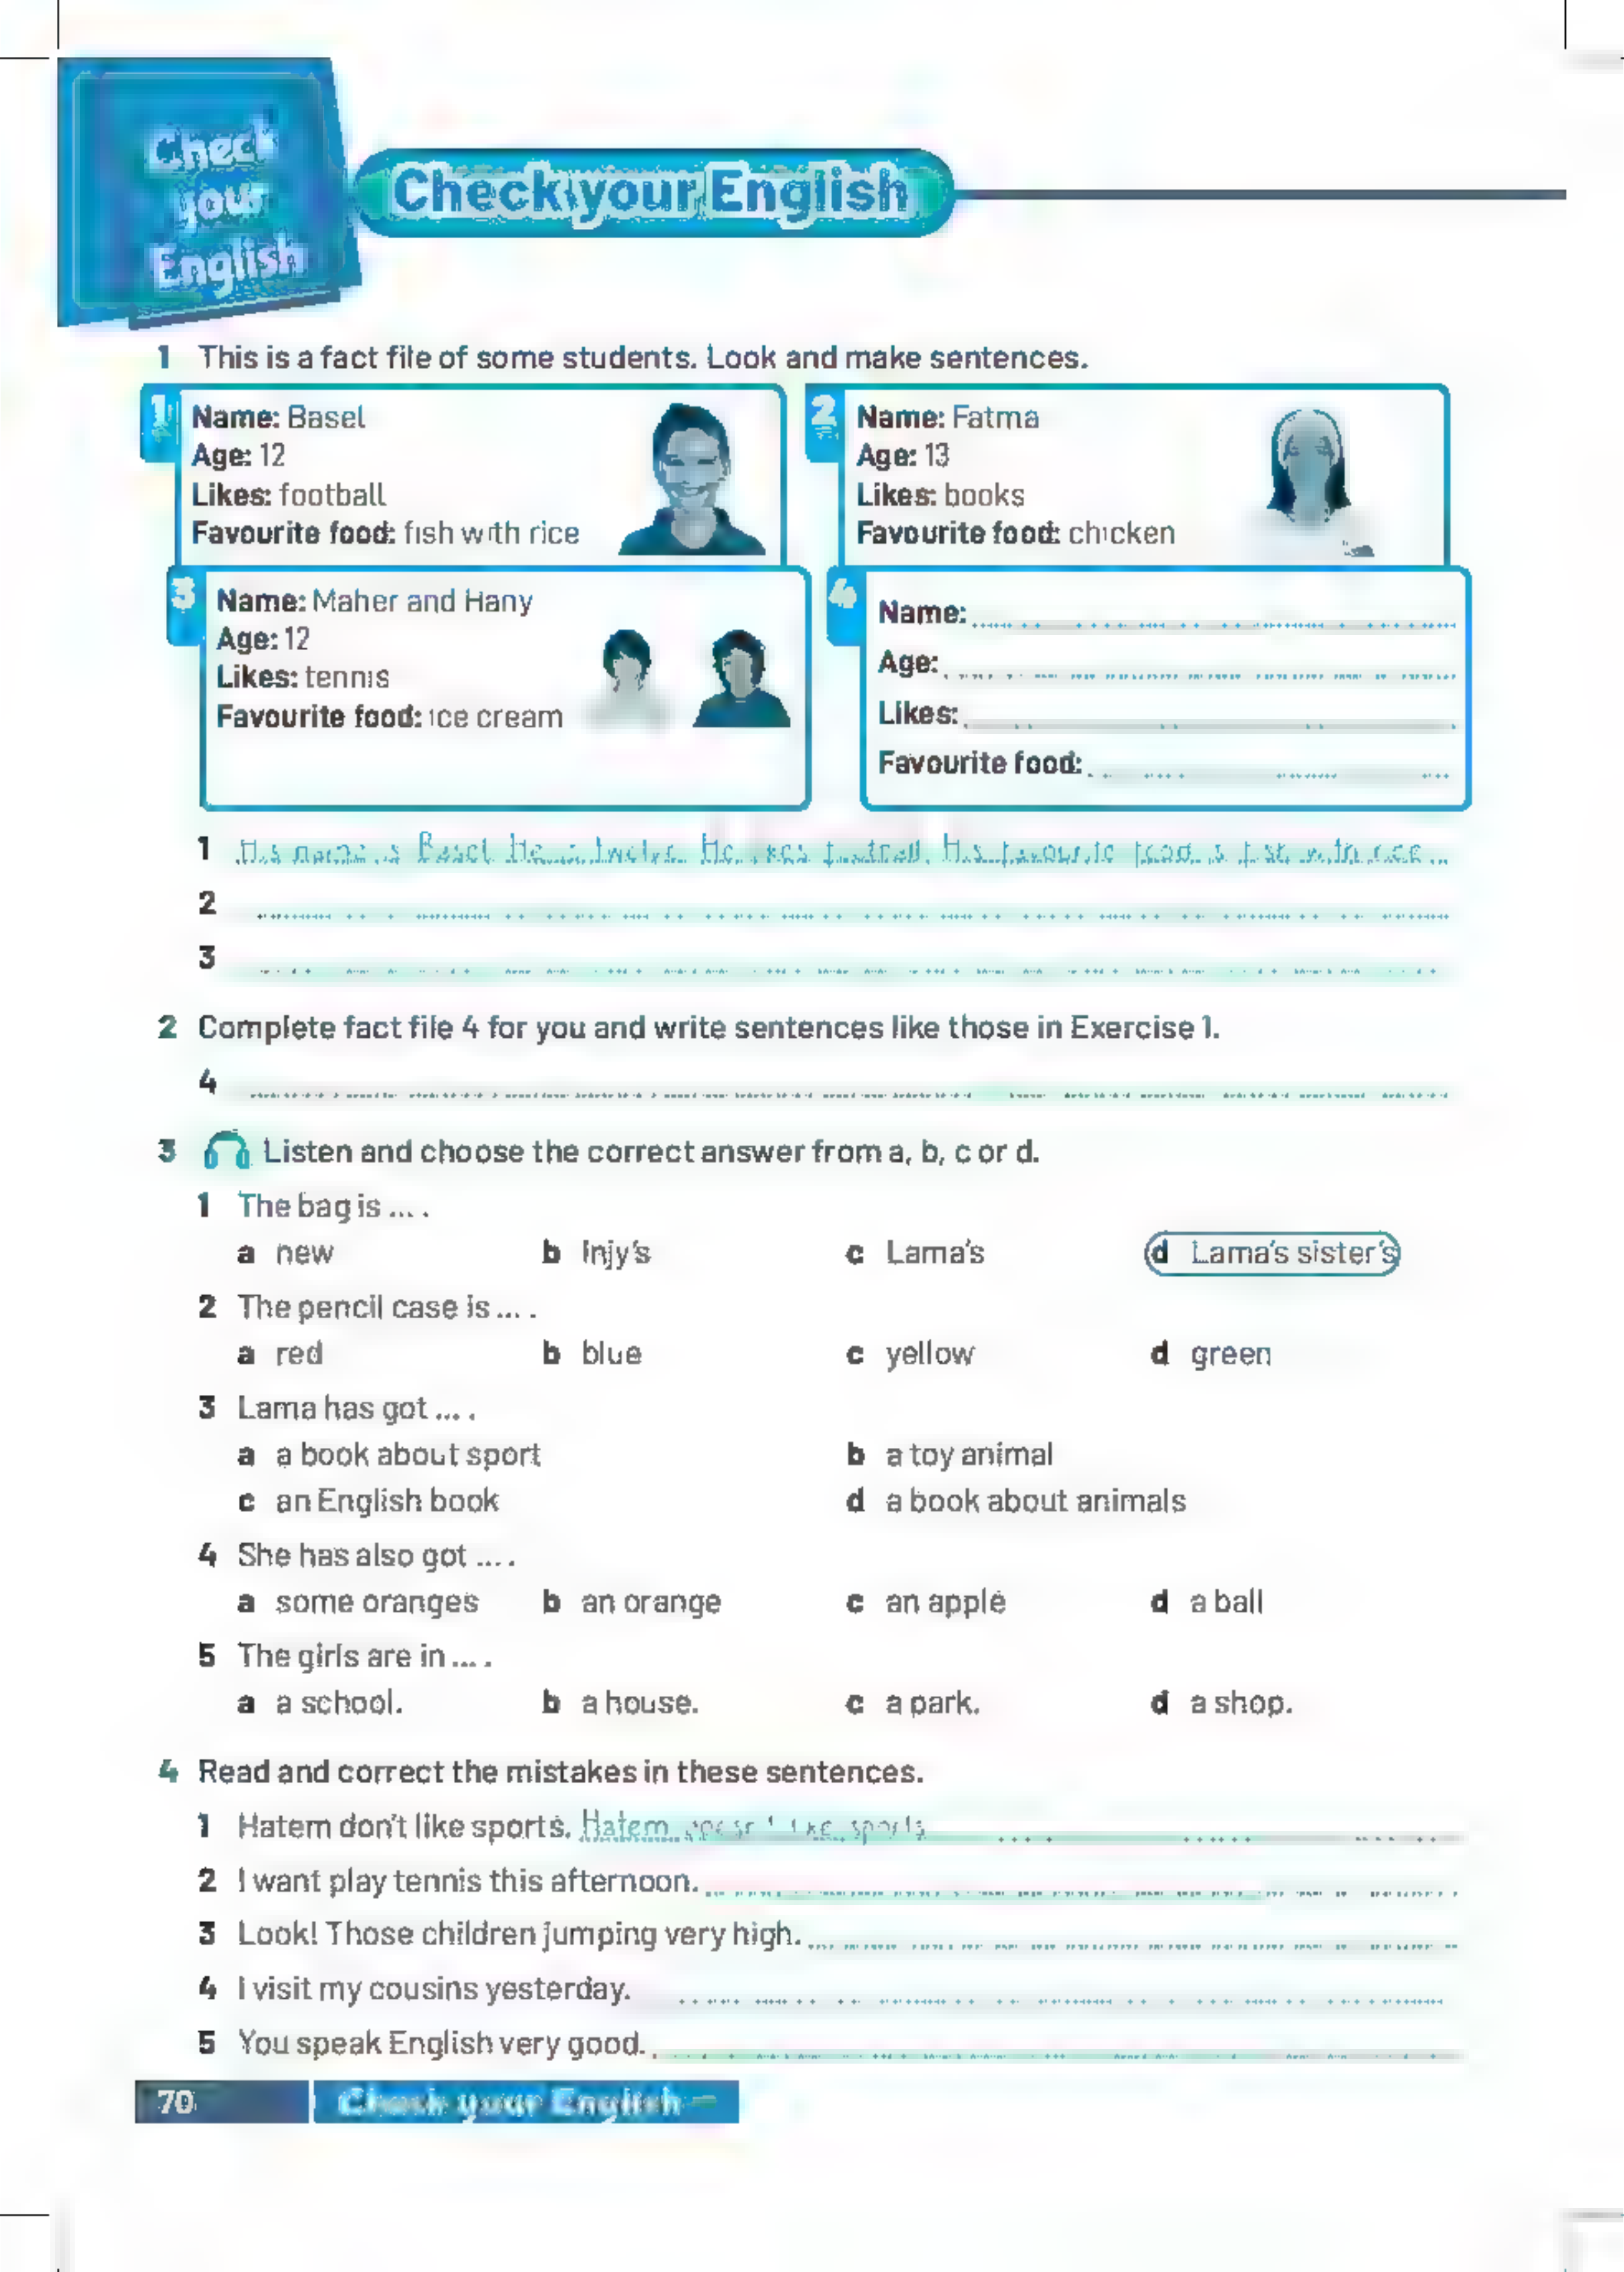 Check
your
English
Check your English
1 This is a fact file of some students. Look and make sentences.
1
Name: Basel
Age: 12
Likes: football
Favourite food: fish with rice
2
Name: Fatma
Age: 13
Likes: books
Favourite food: chicken
3
Name: Maher and Hany
Age: 12
Likes: tennis
Favourite food: ice cream
4
Name:
Age:
Likes:
Favourite food:
1 His name is Basel. He is twelve. He likes football. His favourite food is fish with rice.
2
3
2 Complete fact file 4 for you and write sentences like those in Exercise 1.
4
3 Listen and choose the correct answer from a, b, c or d.
1 The bag is ... .
a new b Injy's c Lama's d Lama's sister's
2 The pencil case is ... .
a red b blue c yellow d green
3 Lama has got ... .
a a book about sport b a toy animal
c an English book d a book about animals
4 She has also got ... .
a some oranges b an orange c an apple d a ball
5 The girls are in ... .
a a school. b a house. c a park. d a shop.
4 Read and correct the mistakes in these sentences.
1 Hatem don't like sports. Hatem doesn't like sports
2 I want play tennis this afternoon.
3 Look! Those children jumping very high.
4 I visit my cousins yesterday.
5 You speak English very good.
70 Check your English